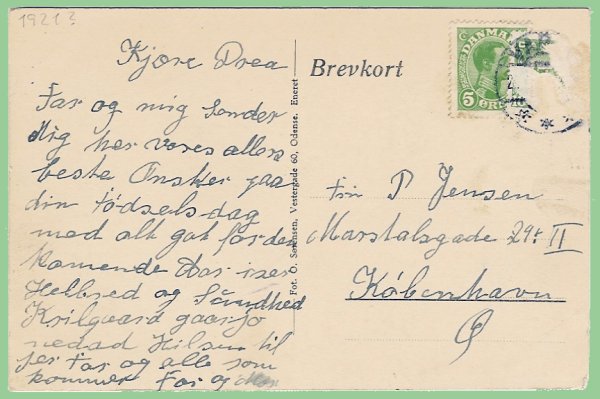 1921?
Kjære Drea
Far og mig sender
dig her vores allers
beste Ønsker paa
din Fødselsdag
med alt got for den
komende Aar især
Helbred og Sundhed
gaar jo
nedad Hilsen til
jer Far og alle som
kommer Far og
Fot. O. Sørensen, Vestergade 60, Odense. Eneret
Brevkort
DANMARK
5 ØRE
Fru P Jensen
Marstalsgade 29 II
København
Ø